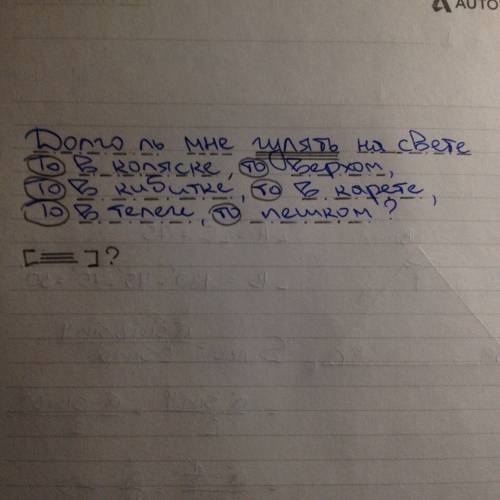 AUTO
Долго ль мне гулять на свете
То в коляске, то верхом,
То в кибитке, то в карете,
То в телеге, то пешком?
[ ]?